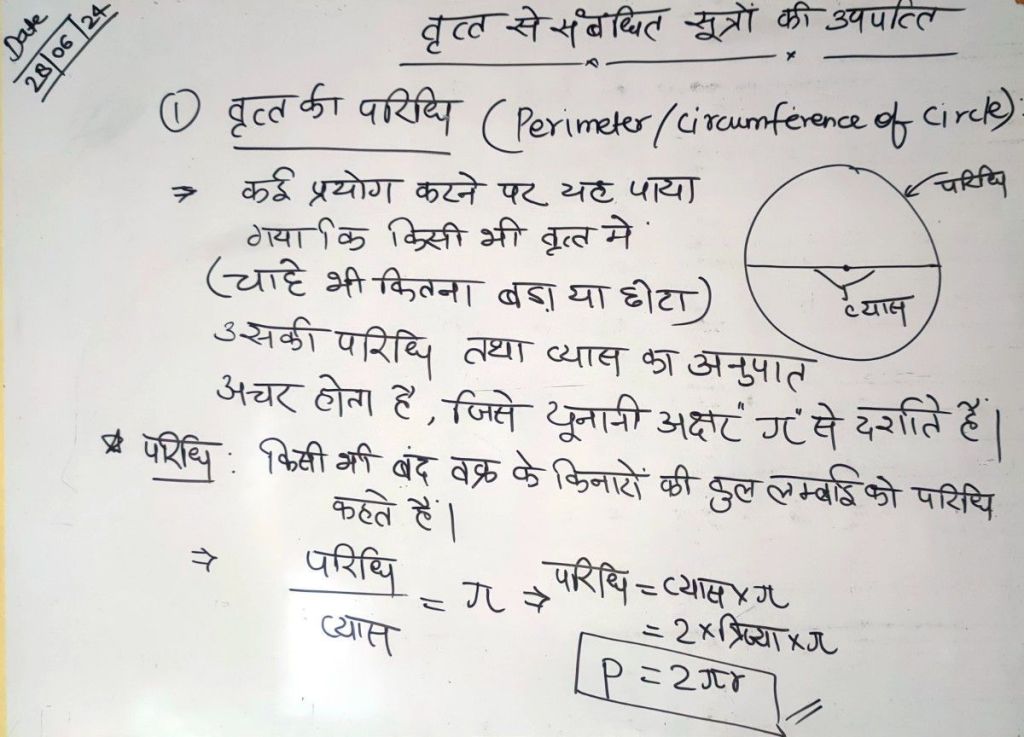 Date
28/06/24
वृत्त से संबंधित सूत्रों की उपपत्ति
① वृत्त की परिधि (Perimeter/circumference of circle):
⇒ कई प्रयोग करने पर यह पाया
गया कि किसी भी वृत्त में
(चाहे भी कितना बड़ा या छोटा)
परिधि
व्यास
उसकी परिधि तथा व्यास का अनुपात
अचर होता है, जिसे यूनानी अक्षर "π" से दर्शाते हैं।
* परिधि: किसी भी बंद वक्र के किनारों की कुल लम्बाई को परिधि
कहते हैं।
⇒ परिधि/व्यास = π ⇒ परिधि = व्यास × π
= 2 × त्रिज्या × π
P = 2πr